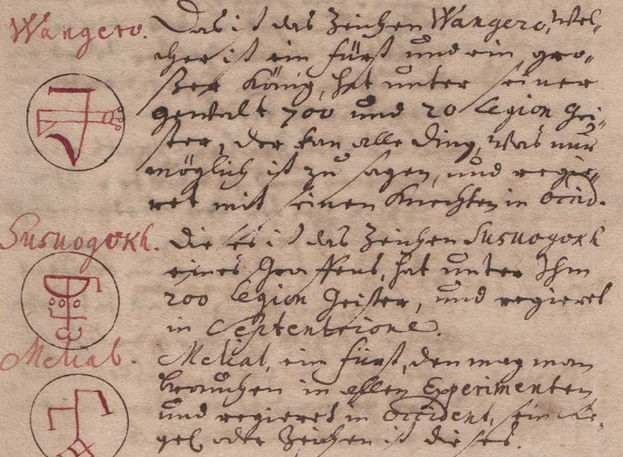 Wangero.
Das ist das Zeichen Wangero, wel-
cher ist ein fürst und ein gro-
ßer König, hat unter seiner
gewalt 700 und 20 Legion Gei-
ster, der kan alle Ding, was nur
möglich ist zu sagen, und regie-
ret mit seinen Knechten in Occid.
Susuogokh.
Die ses ist das Zeichen Susuogokh
eines Graffens, hat unter Ihm
200 Legion Geister, und regieret
in Septentrione.
Meliab.
Meliat, ein fürst, den mag man
brauchen in allen Experimenten
und regieret in Occident, sein Si-
gel oder Zeichen ist die ses.